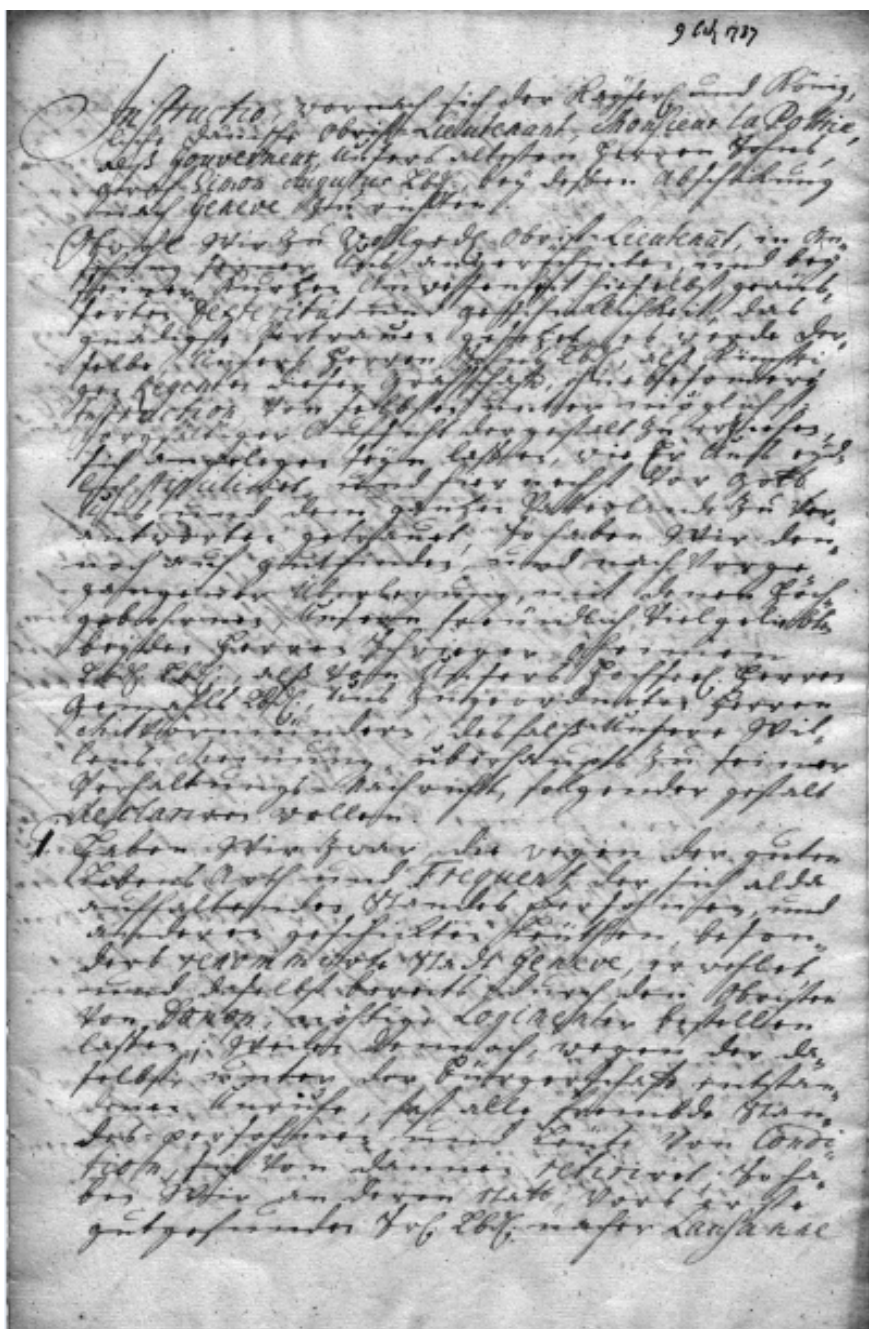 9 Oct 1737
Instructio, wornach sich der Kayserl. und König-
liche dänische Obrist-Lieutenant, Monsieur la Pottrie,
alß Gouverneur, Unsers ältesten Herren Sohns,
Graf Simon Augustus Lbd., bey deßen Abschickung
nach Geneve zu richten.
Obwohl Wir zu Wollged. Obrist-Lieutenant, in An-
sehung seiner Uns angerühmten, und bey
seiner kurtzen Anwesenheit hieselbst geäus-
serten Dexterität und Geschicklichkeit, das
gnädigste Vertrauen gesetzet, es werde Der-
selbe Unsers Herren Sohns Lbd., alß künfti-
gen Regenten dieser Graffschafft, ohne besondere
Instruction von selbsten unter möglichst
sorgfältiger Aufsicht dergestalt zu erziehen,
sich angelegen seyn laßen, wie Er Unß
und hiernechst vor Gott
Uns und dem gantzen Vatterlande zu ver-
antworten getrauet, so haben Wir den-
noch auch gutfinden, und nach vorge-
gangener Überlegung, mit denen Hoch-
gebohrnen Unsern freundlich Vielgeliebten
beyden Herren Schwieger
Lbd. Lbd., alß von Unsers Hochseel. Herren
Gemahls Lbd. Uns zugeordneten Herren
Mitvormündern, desfalß Unsere Wil-
lens-Meinung überhaupt zu seiner
Verhaltungs-Nachricht, folgender gestalt
declariren wollen.
1 Haben Wir zwar die wegen der guten
Lebens Arth und Frequentz der sich alda
auffhaltenden Standes Persohnen, und
anderen geschickten Leuthen, beson-
ders renommirte Stadt Geneve, erwehlet
und daselbst bereits durch den Obristen
von Donop, nöthige Logimenter bestellen
laßen; Weilen dennoch, wegen der da-
selbst unter der Bürgerschafft entstan-
denen Unruhe, fast alle frembde Stan-
des-persohnen und Leute von Condi-
tion, sich von dannen retiriret, So ha-
ben Wir an deren statt, vors erste
gutgefunden Sr. Lbd. nacher Lausanne